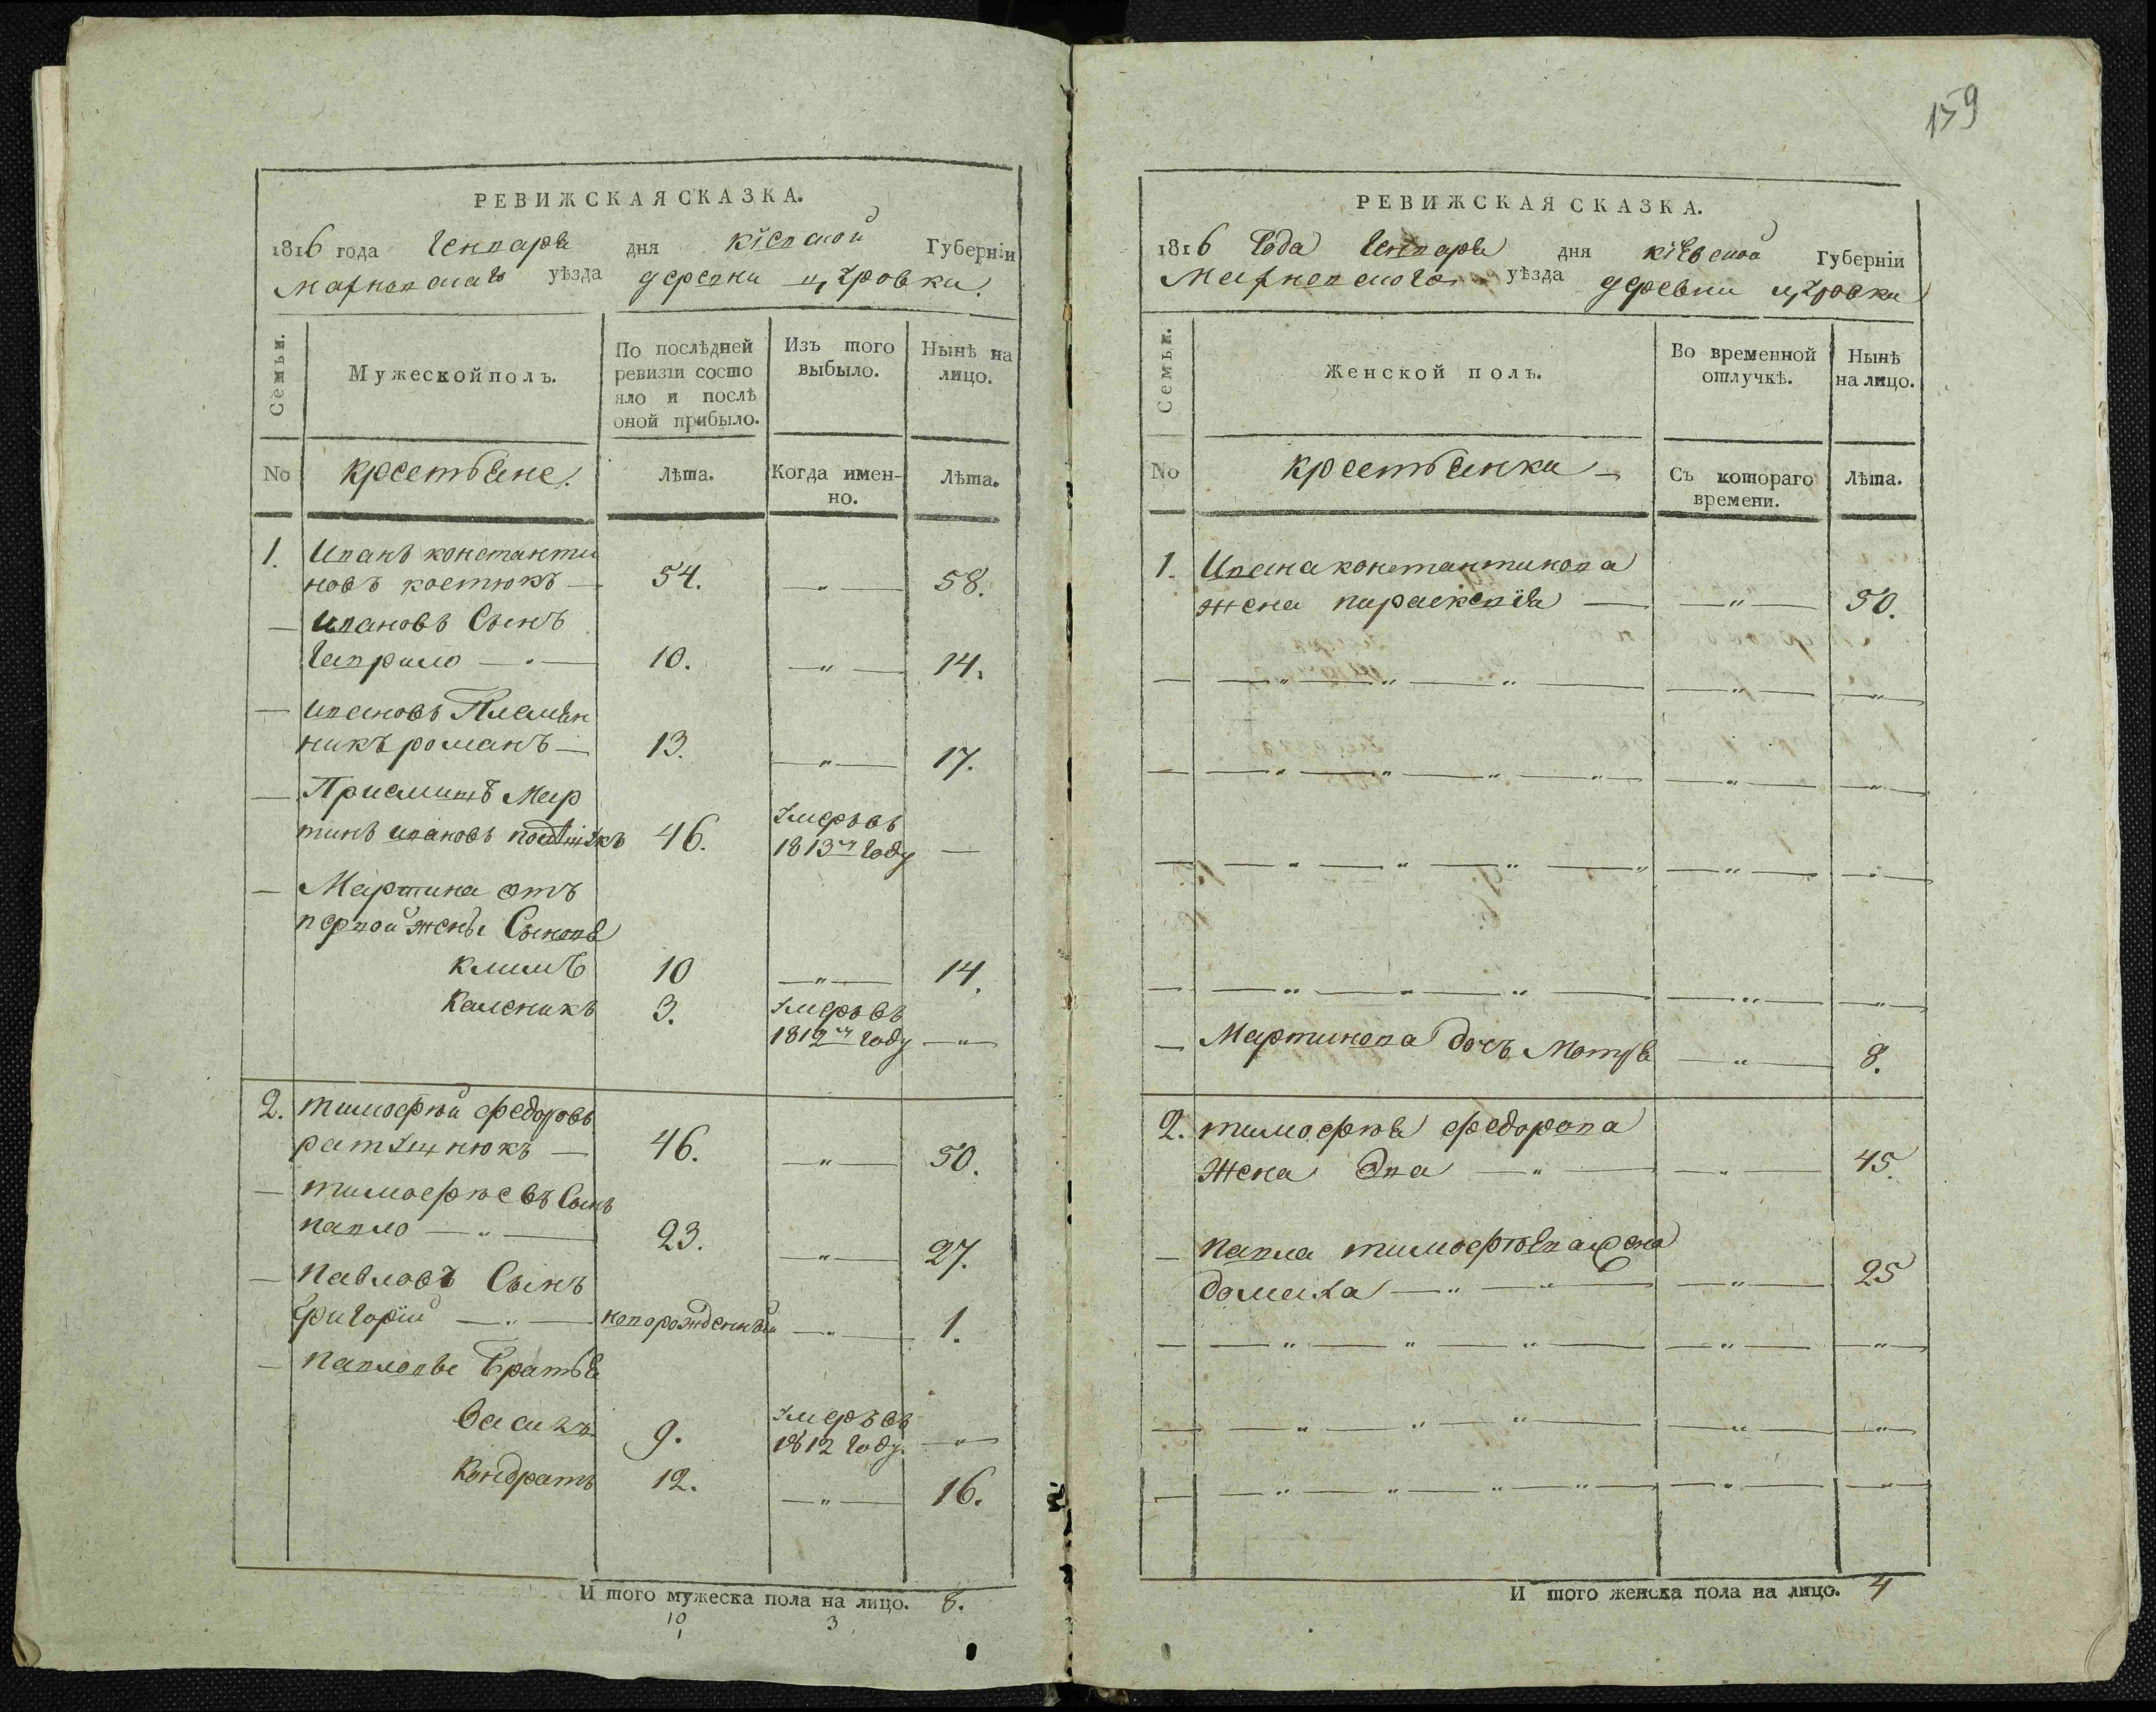 РЕВИЖСКАЯ СКАЗКА.
1816 года Генваря дня кіевской Губерніи
Махновскаго уѣзда деревни
Семьи.
Мужеской полъ.
По послѣдней ревизіи состояло и послѣ оной прибыло.
Изъ того выбыло.
Нынѣ на лицо.
No
крестьяне.
Лѣта.
Когда именно.
Лѣта.
1. Иванъ константи
новъ костюкъ — 54. — " — 58.
— Ивановъ Сынъ
Гаврило — " — 10. — " — 14.
— Ивановъ Племян
никъ романъ — 13. — " — 17.
— Приемишъ Мар
тинъ ивановъ 46. Умеръ въ 1813м году —
— Мартина отъ
первой жены Сыновя
климъ 10 — " — 14.
Каленикъ 3. Умеръ въ 1812м году — " —
2. тимофѣй федоровъ
46. — " — 50.
— тимофѣевъ Сынъ
павло — " — 23. — " — 27.
— павловъ Сынъ
Григорій — " — новорожденный — " — 1.
— павловы Братья
Василь 9. Умеръ въ 1812 году. — " —
Кондратъ 12. — " — 16.
И того мужеска пола на лицо. 8.
10 3
1
159
РЕВИЖСКАЯ СКАЗКА.
1816 Года Генваря дня кіевской Губерніи
Махновского уѣзда деревни
Семьи.
Женской полъ.
Во временной отлучкѣ.
Нынѣ на лицо.
No
крестьянки —
Съ котораго времени.
Лѣта.
1. Ивана константинова
жена параскевія — — " — 50.
— Мартинова дочъ Мотря — " — 8.
2. тимофѣя федорова
Жена Эва — " — — " — 45.
— павла тимофѣева жена
домаха — " — " — — " — 25
И того женска пола на лицо. 4